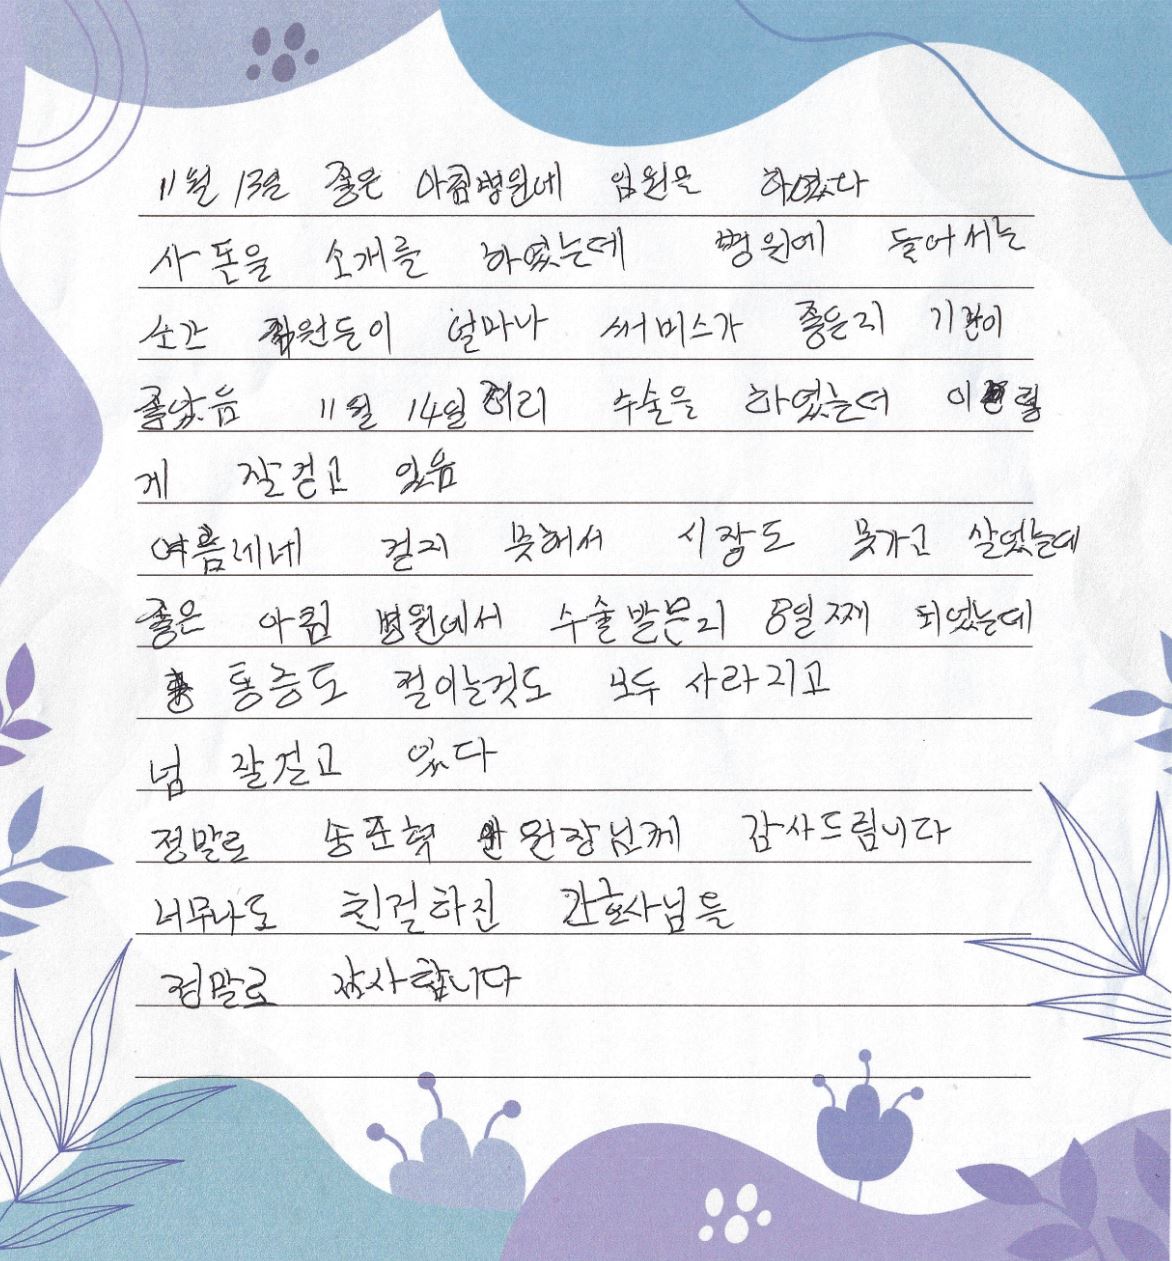 11월 13일 좋은 아침병원에 입원을 하였다
사돈을 소개를 하였는데 병원에 들어서는
순간 직원들이 얼마나 써비스가 좋은지 기분이
좋았음 11월 14일 허리 수술을 하였는데 이렇
게 잘 걷고 있음
여름세네 걷지 못해서 시장도 못가고 살었는데
좋은 아침 병원에서 수술받은지 8일째 되었는데
통증도 절이는것도 모두 사라지고
넘 잘걸고 있다
정말로 송준혁 원장님께 감사드림니다
너무나도 친절하진 간호사님들
정말로 감사합니다